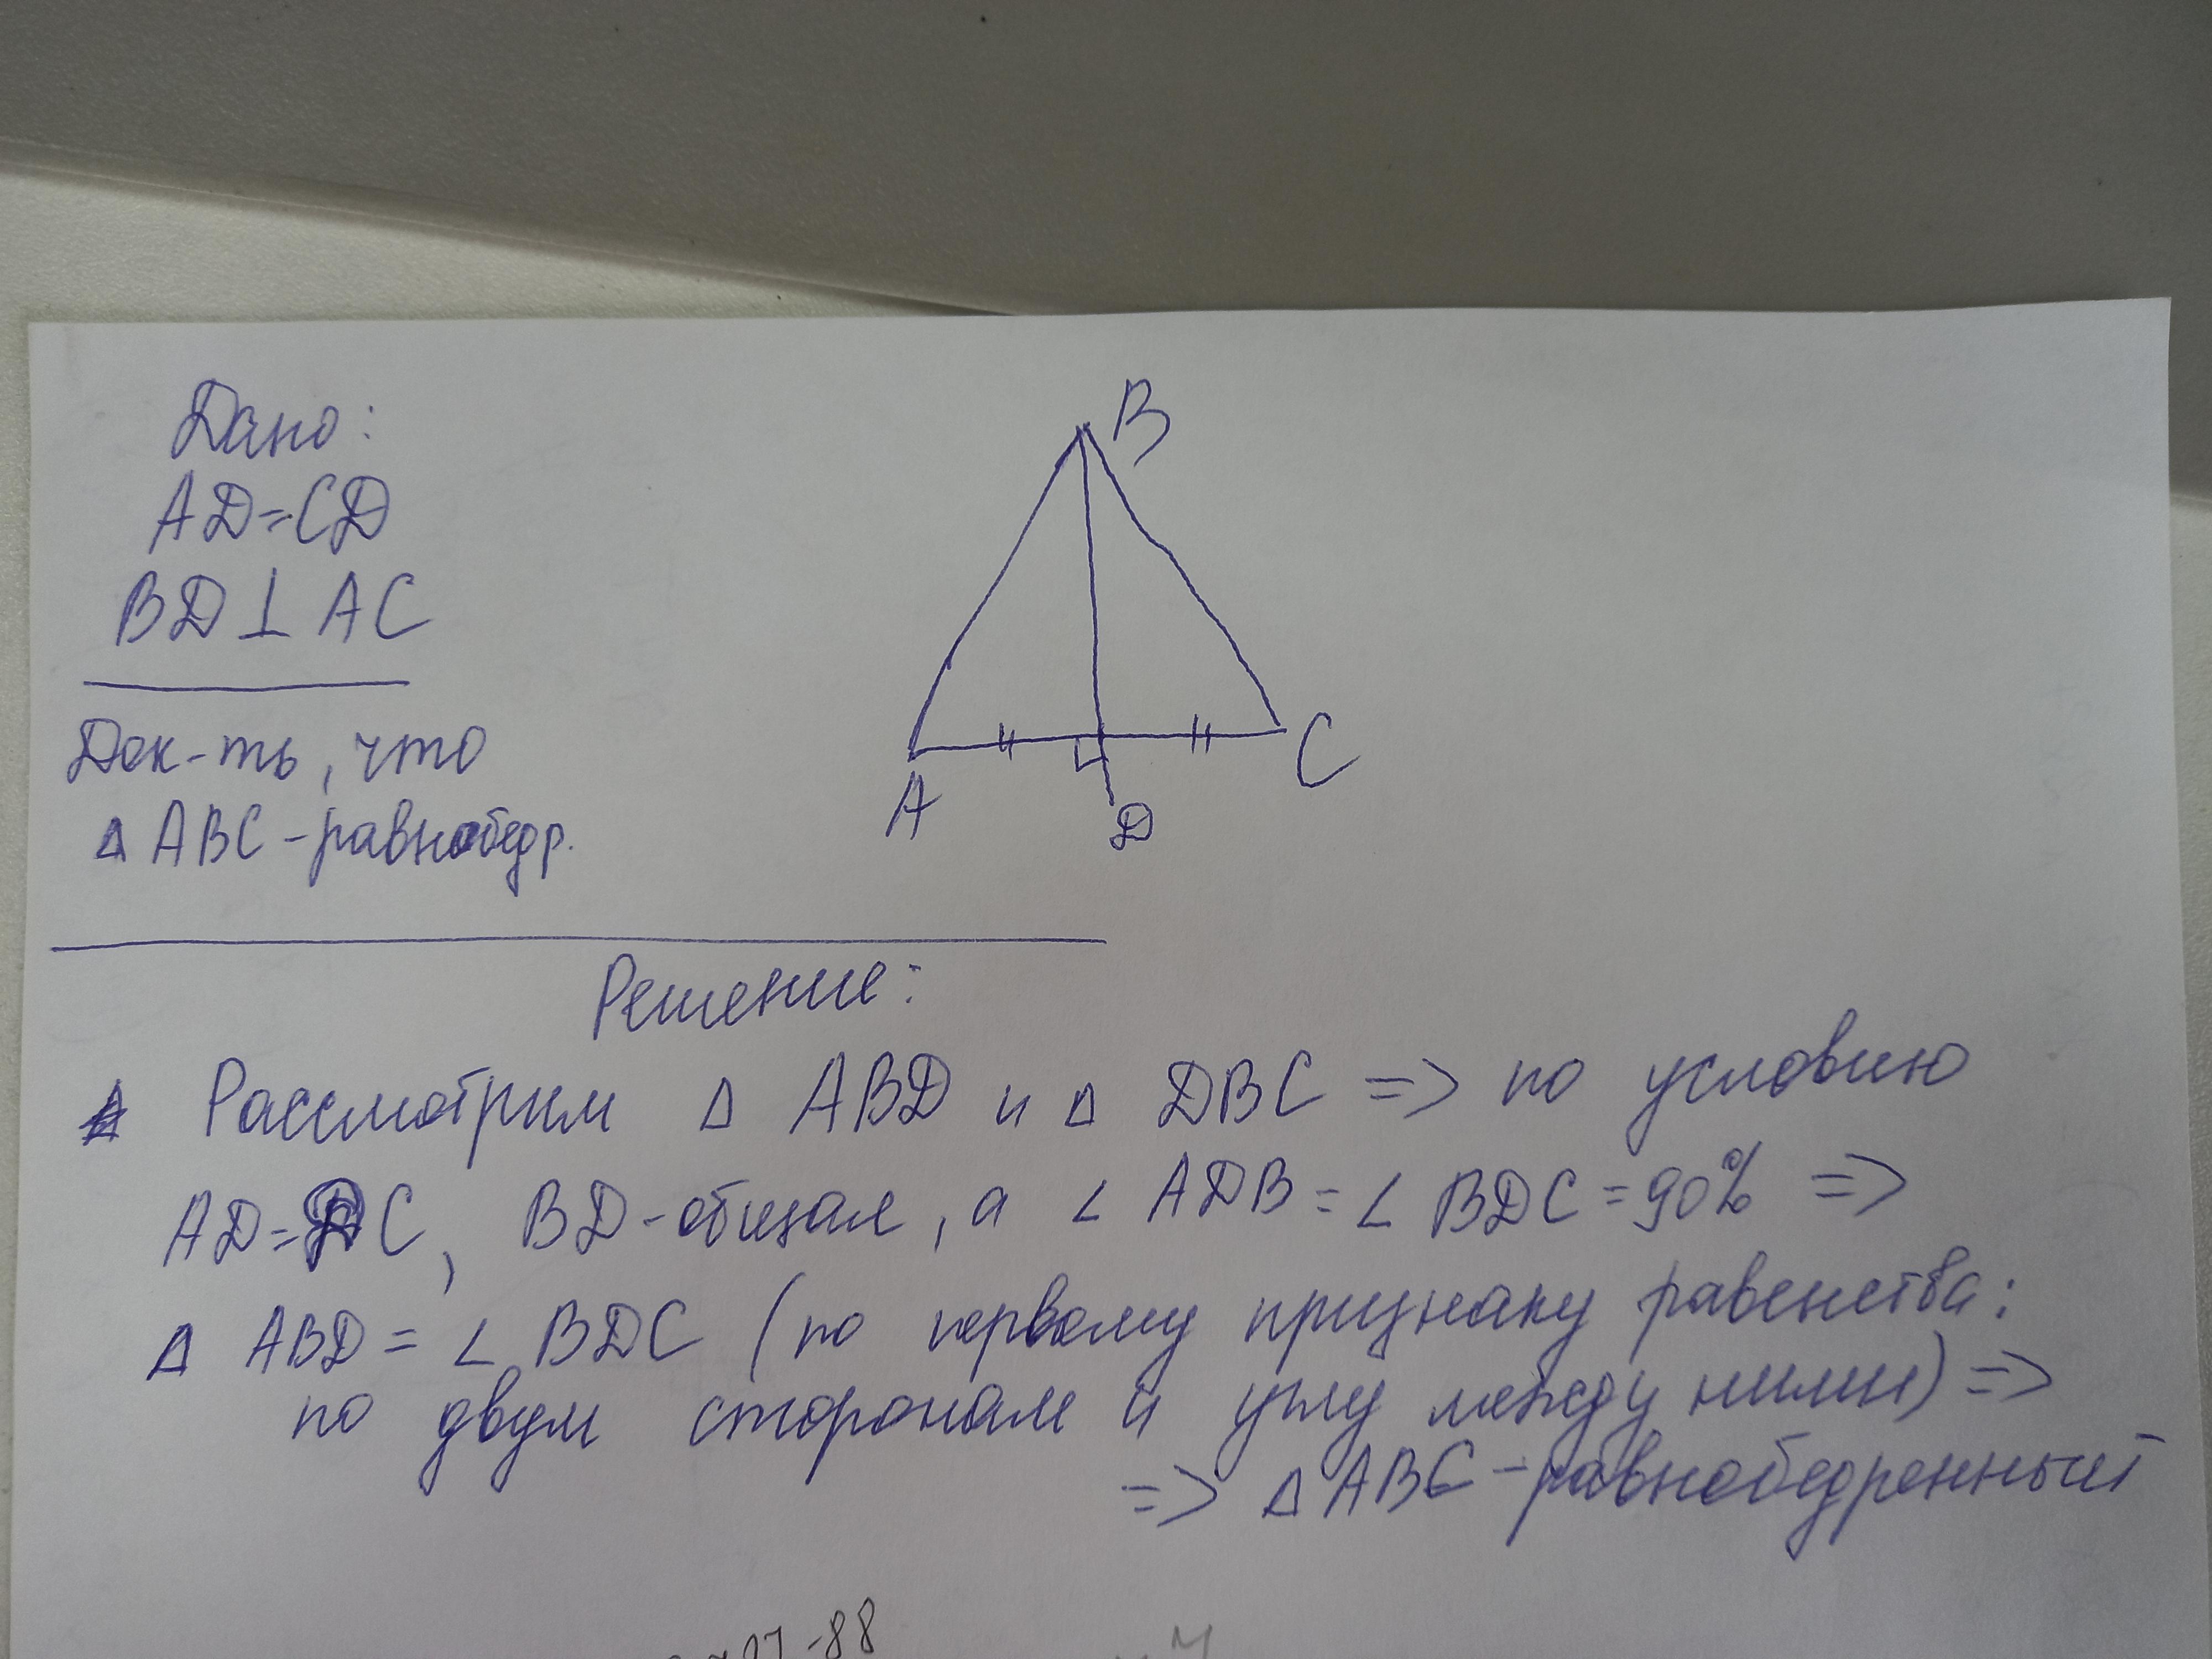 Дано:
AD=CD
BD⊥AC
Док-ть, что
△ABC-равнобедр.
B
A
D
C
Решение:
Рассмотрим △ ABD и △ DBC => по условию
AD=DC, BD-общая, а ∠ ADB=∠ BDC=90% =>
△ ABD=∠ BDC (по первому признаку равенства:
по двум сторонам и углу между ними) =>
=> △ ABC-равнобедренный
-88